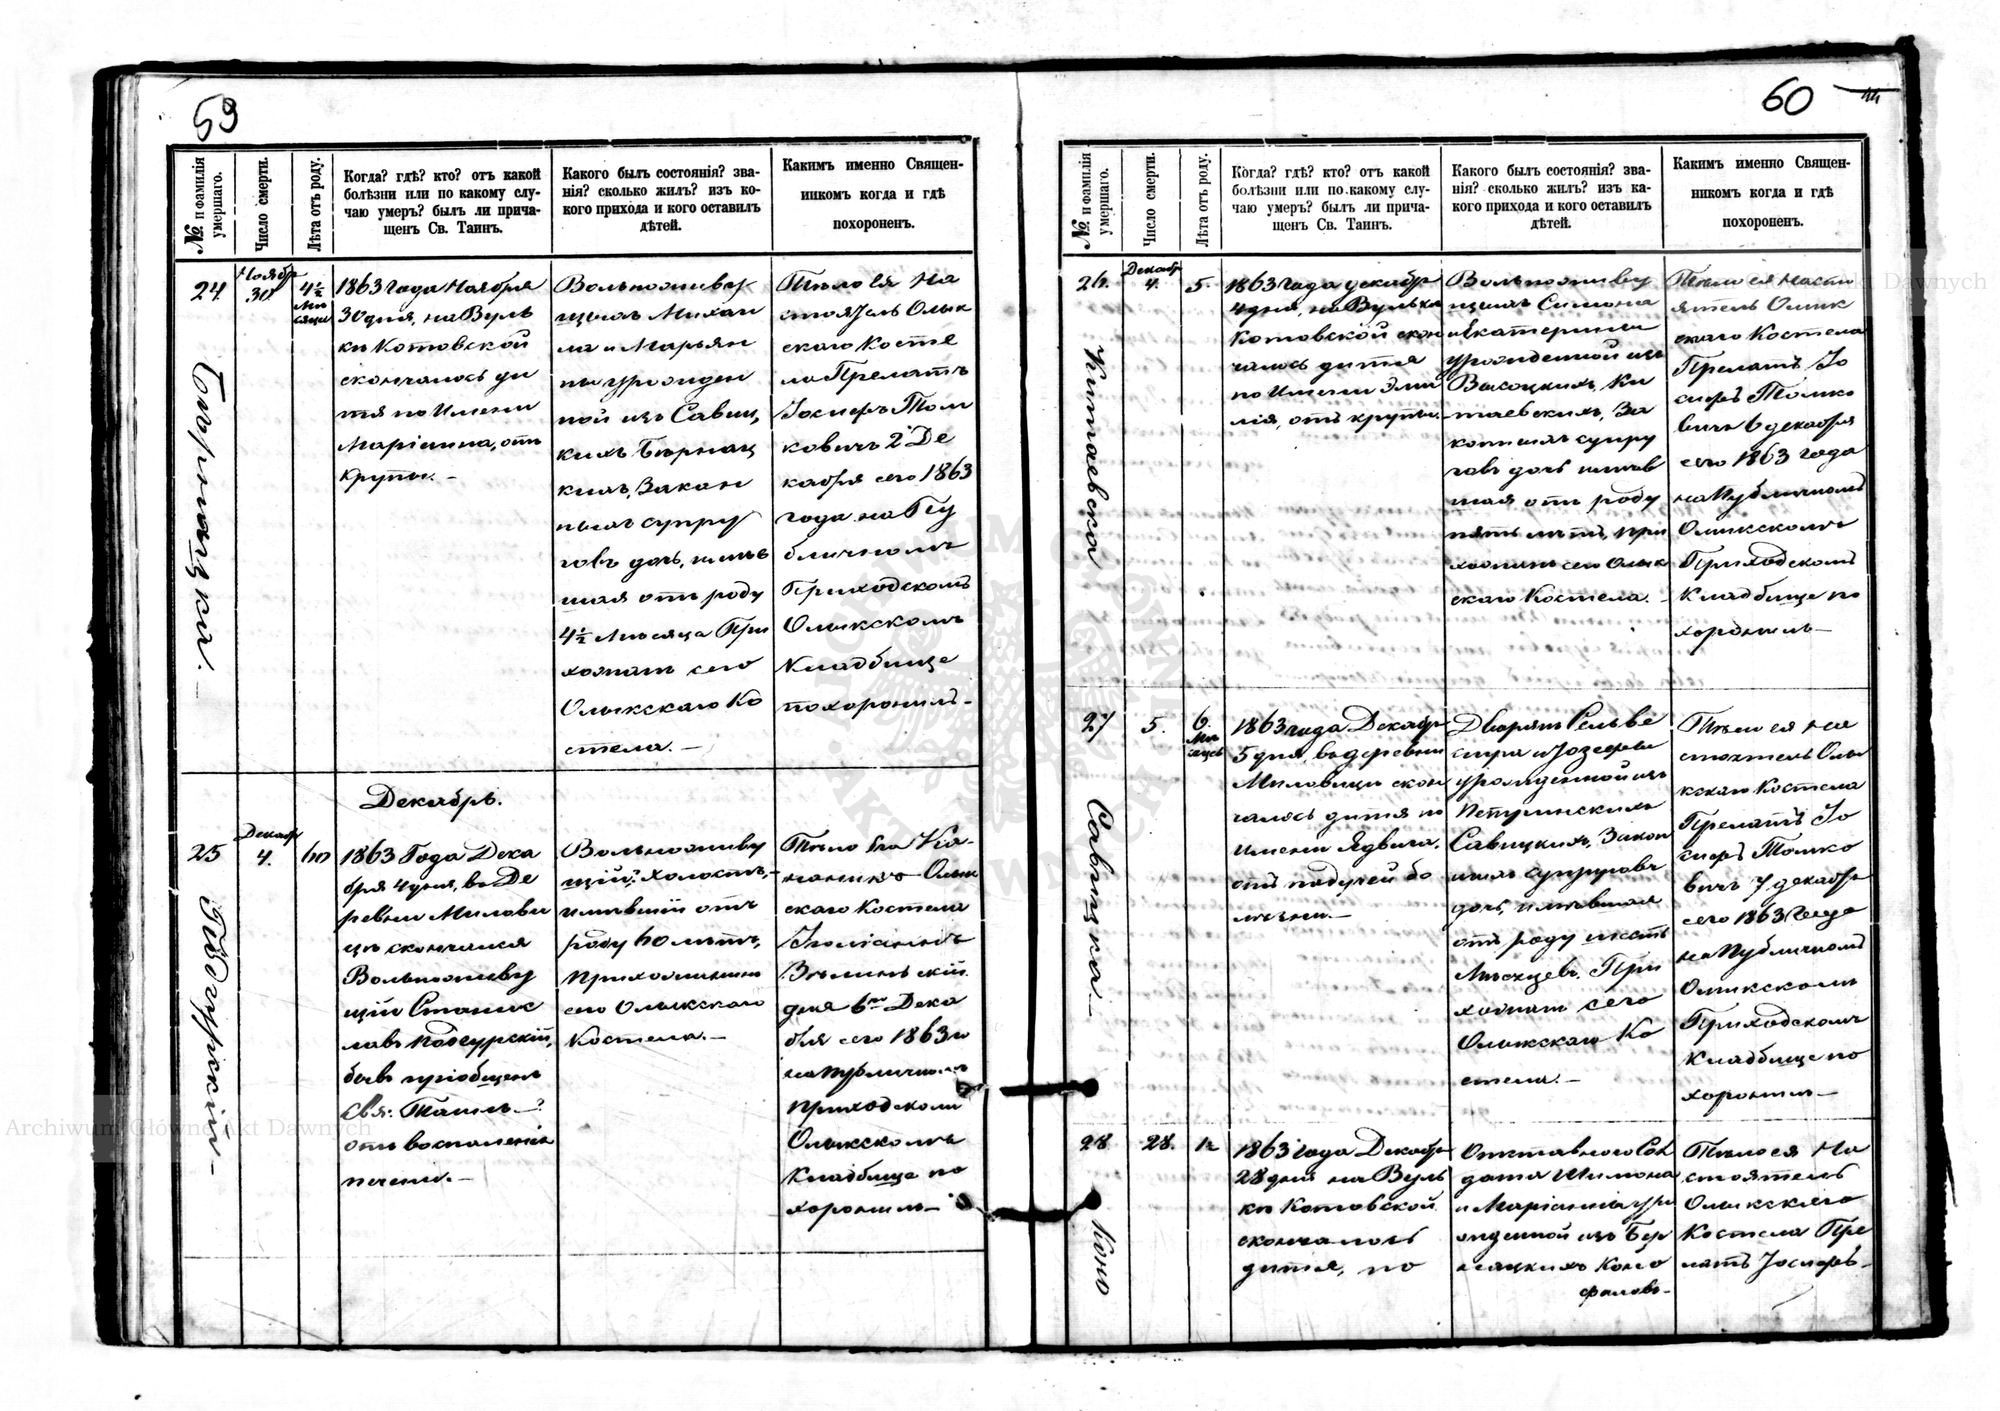 59
№ и фамилія умершаго.
Число смерти.
Лѣта отъ роду.
Когда? гдѣ? кто? отъ какой
болѣзни или по какому слу-
чаю умеръ? былъ ли прича-
щенъ Св. Таинъ.
Какого былъ состоянія? зва-
нія? сколько жилъ? изъ ко-
кого прихода и кого оставилъ
дѣтей.
Какимъ именно Священ-
никомъ когда и гдѣ
похороненъ.
24
Ноябр
30
4½
Мѣ
сяца
1863 года Ноября
30 дня, на Вуль
кѣ Котовской
скончалось ди
тя по Имени
Маріанна, отъ
крупы. –
Вольноживу
щихъ Михаи
ла и Марьян
ны урожден
ной изъ Савиц
кихъ Бѣрнац
кихъ, Закон
ныхъ супру
говъ дочь, имѣв
шая отъ роду
4½ Мѣсяца При
хожанъ сего
Олыкскаго Ко
стела. –
Тѣло Ея На
стоятель Олык
скаго Косте
ла Прелатъ
Іосифъ Том
ковичъ 2 Де
кабря сего 1863
года на Пу
бличномъ
Приходскомъ
Олыкскомъ
Кладбище
похоронилъ –
Декабрь.
25
Декабр
4.
60
1863 Года Дека
бря 4 дня, въ Де
ревни Милови
цѣ скончался
Вольноживу
щій Станис
лавъ Подгурскій,
бывъ пріобщенъ
Свя: Таинъ –
отъ воспаленія
печени. –
Подгурскій –
Вольноживу
щій, холостъ, –
имѣвшій отъ
роду 60 лѣтъ,
прихожанинъ
сего Олыкскаго
Костела. –
Тѣло Его Ка-
ноникъ Олык
скаго Костела
дня 6го Дека
бря сего 1863 го
на Публичномъ
Приходскомъ
Олыкскомъ
Кладбище по
хоронилъ –
60
№ и фамилія умершаго.
Число смерти.
Лѣта отъ роду.
Когда? гдѣ? кто? отъ какой
болѣзни или по какому слу-
чаю умеръ? былъ ли прича-
щенъ Св. Таинъ.
Какого былъ состоянія? зва-
нія? сколько жилъ? изъ ка-
кого прихода и кого оставилъ
дѣтей.
Какимъ именно Священ-
никомъ когда и гдѣ
похороненъ.
26.
Декабр
4.
5.
Китаевска
1863 года декабр
4 дня, на Вулька
Котовской скон
чалось дитя
по Имени Эми
лія, отъ крупы.
Вольноживу
щихъ Симона
и Екатерины
урожденной изъ
Высоцкихъ, Ки
таевскихъ, За
конныхъ супру
говъ дочь имѣв
шая отъ роду
пять лѣтъ, при
хожанъ сего Олык
скаго Костела. –
Тѣло ея насто
ятель Олык
скаго Костела
Прелатъ Іо
сифъ Томко
вичъ 6 декабря
сего 1863 года
на Публичномъ
Олыкскомъ
Приходскомъ
Кладбище по
хоронилъ –
27
5.
6.
Мѣ
сяцевъ
Савицка –
1863 года Декабр
5 дня, въ деревни
Миловицы скон
чалось дитя по
имени Ядвига.
отъ падучей бо
лѣзни. –
Дворянъ Сельве
стра и Іозефы
урожденной изъ
Петрынскихъ
Савицкихъ, Закон
ныхъ супруговъ
дочь, имѣвшая
отъ роду шесть
Мѣсяцевъ. При
хожанъ сего
Олыкскаго Ко
стела. –
Тѣло ея На
стоятель Олы
кскаго Костела
Прелатъ Іо
сифъ Томко
вичъ 7 декабр
сего 1863 Года
на Публичномъ
Олыкскомъ
Приходскомъ
Кладбище по
хоронилъ –
28
28.
Коно
1863 года Декабр
28 дня на Вуль
кѣ Котовской
скончалось
дитя, по
Отставного Сол
дата Шимона
и Маріанны уро
жденной изъ Бер
нацкихъ Коно
фаловъ –
Тѣло ея На
стоятель
Олыкскаго
Костела Пре
латъ Іосифъ –
Archiwum Główne Akt Dawnych